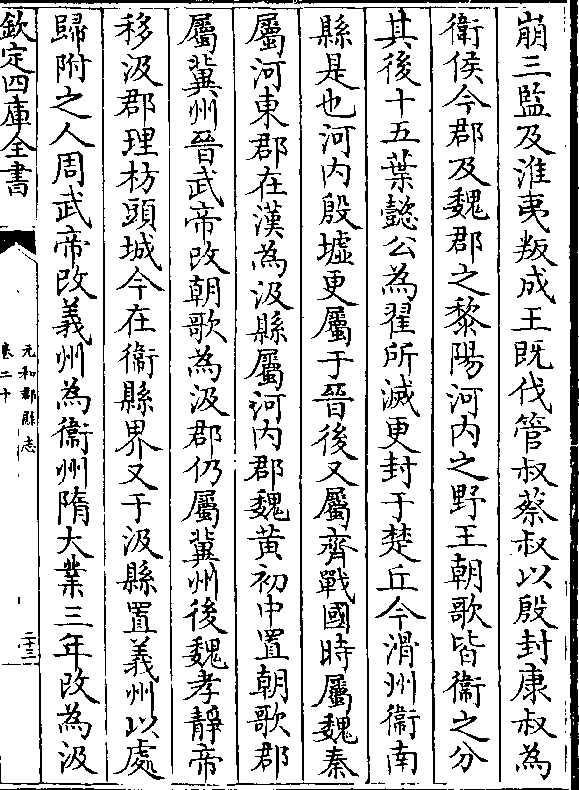 崩三監及淮夷叛成王既伐管叔蔡叔以殷封康叔為
衛侯今郡及魏郡之黎陽河内之野王朝歌皆衛之分
其後十五葉懿公為翟所滅更封于楚丘今滑州衛南
縣是也河内殷墟更屬于晉後又屬齊戰國時屬魏秦
屬河東郡在漢為汲縣屬河内郡魏黄初中置朝歌郡
屬冀州晉武帝改朝歌為汲郡仍屬冀州後魏孝靜帝
移汲郡理枋頭城今在衛縣界又于汲縣置義州以處
歸附之人周武帝改義州為衛州隋大業三年改為汲
欽定四庫全書
元和郡縣志
卷二十
二十三